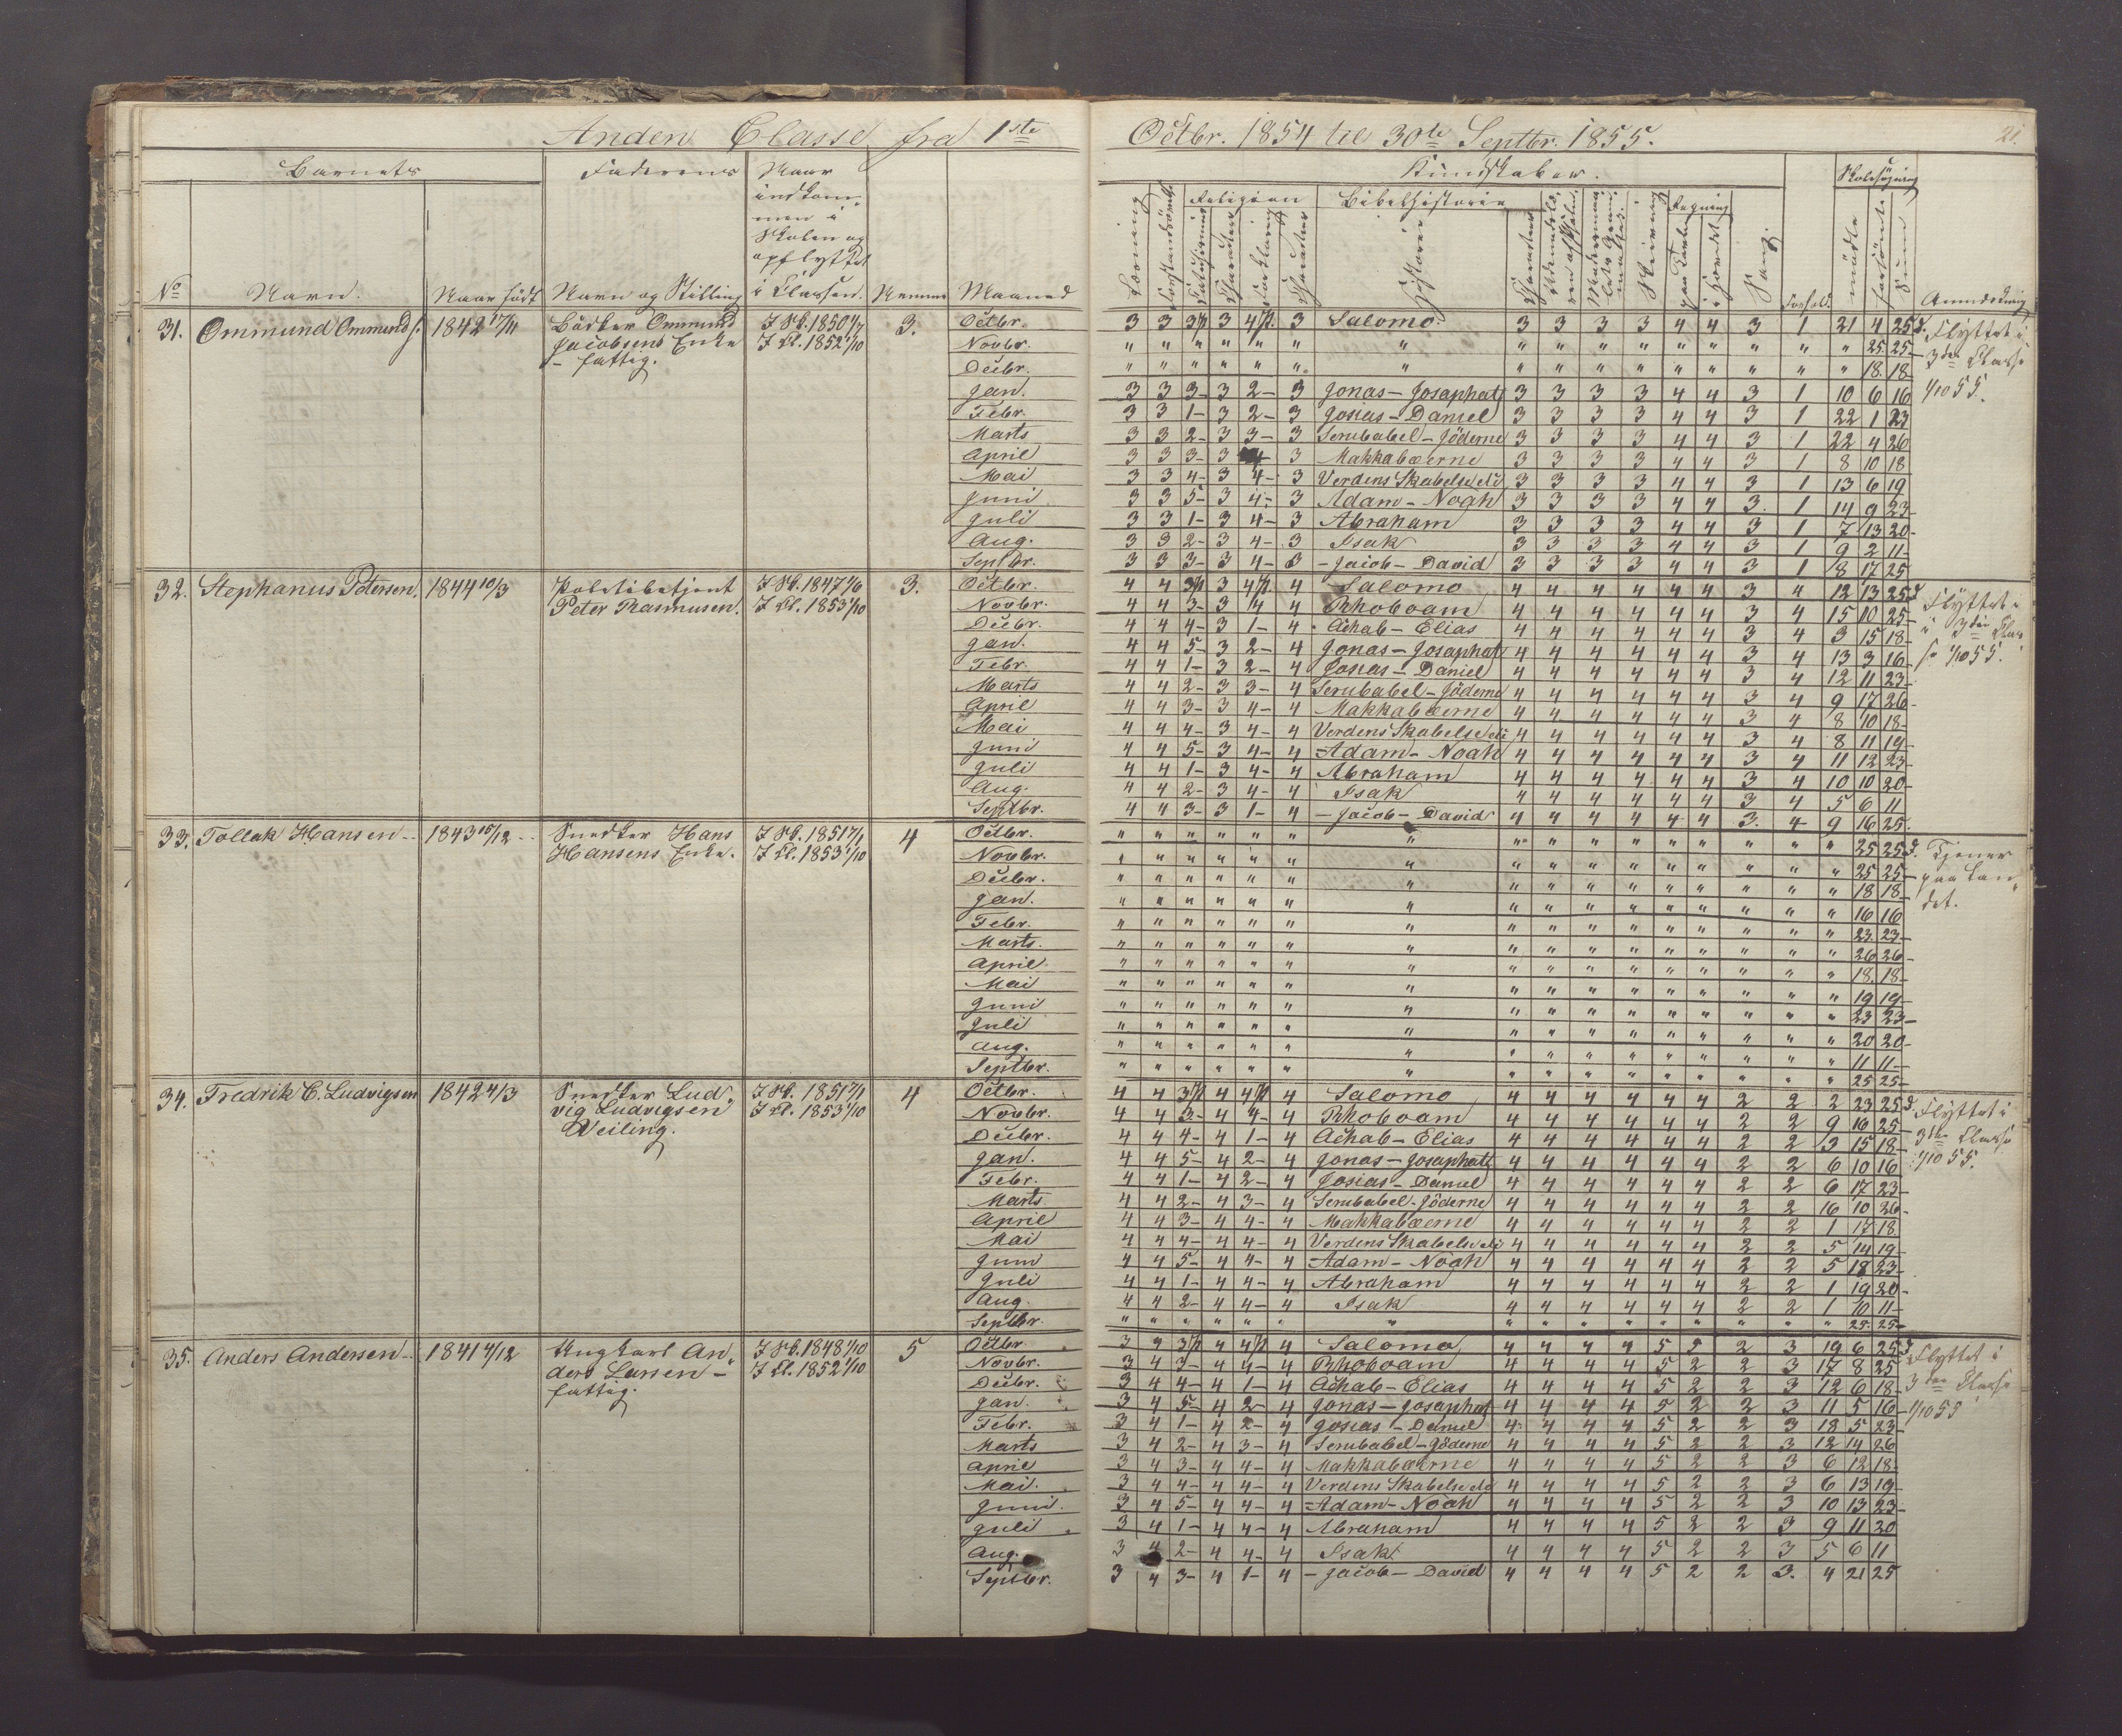 Anden Classe fra 1ste Octbr. 1854 til 30te Septbr. 1855.
21.
Barnets
Faderens
Naar indkommen i Skolen og opflyttet i Classen.
Kundskaber.
Skolesøgning
Religion
Bibelhistorie
Regning
No
Navn.
Naar født
Navn og Stilling
Nemme
Maaned
Læsning
Forklaring
Historie
Skrivning
paa Tavle
i Hovedet
Sang
Forhold
mødte
forsømte
Sum
Anmærkning
31. Ommund Ommunds. 1842 17/4
Bødker Ommund
Jacobsens Enke
- fattig.
I Sk. 1850 1/7
I Cl. 1852 1/10
3.
Octbr. 3 3 3 4 3 Salomo. 3 3 3 3 4 4 3 1 21 4 25 d.
Novbr. " " " " " " " " " " " " " " " " 25 25
Decbr. " " " " " " " " " " " " " " " " 18 18
Jan. 3 3 3- 3 2- 3 Jonas - Josaphat 3 3 3 3 4 4 3 1 10 6 16
Febr. 3 3 1- 3 2- 3 Josias - Daniel 3 3 3 3 4 4 3 1 22 1 23
Marts 3 3 2- 3 3- 3 Serubabel - Jöderne 3 3 3 3 4 4 3 1 22 4 26
April 3 3 3- 3 4- 3 Makkabæerne 3 3 3 3 4 4 3 1 8 10 18
Mai 3 3 4- 3 4- 3 Verdens Skabelse 3 3 3 3 4 4 3 1 13 6 19
Juni 3 3 5- 3 4- 3 Adam - Noah 3 3 3 3 4 4 3 1 14 9 23
Juli 3 3 1- 3 4- 3 Abraham 3 3 3 3 4 4 3 1 7 13 20
Aug. 3 3 2- 3 4- 3 Isak 3 3 3 3 4 4 3 1 9 2 11
Septbr. 3 3 3- 3 4- 3 - Jacob - David 3 3 3 3 4 4 3 1 8 17 25
Flyttet i
3die Classe
1/10 55.
32. Stephanus Petersen. 1844 10/3
Politibetjent
Peter Rasmusen.
I Sk. 1847 1/6
I Cl. 1853 1/10
3.
Octbr. 4 4 3 4 4 Salomo 4 4 4 4 4 4 4 " 12 13 25
Novbr. 4 4 3- 3 4 4 Rhoboam 4 4 4 4 4 4 3 4 15 10 25
Decbr. 4 4 4- 3 1- 4 Achab - Elias 4 4 4 4 4 4 3 4 3 15 18
Jan. 4 4 5- 3 2- 4 Jonas - Josaphat 4 4 4 4 4 4 3 4 13 3 16
Febr. 4 4 1- 3 2- 4 Josias - Daniel 4 4 4 4 4 4 3 4 12 11 23
Marts 4 4 2- 3 3- 4 Serubabel - Jöderne 4 4 4 4 4 4 3 4 9 17 26
April 4 4 3- 3 4- 4 Makkabæerne 4 4 4 4 4 4 3 4 8 10 18
Mai 4 4 4- 3 4- 4 Verdens Skabelse 4 4 4 4 4 4 3 4 8 11 19
Juni 4 4 5- 3 4- 4 Adam - Noah 4 4 4 4 4 4 3 4 11 12 23
Juli 4 4 1- 3 4- 4 Abraham 4 4 4 4 4 4 3 4 10 10 20
Aug. 4 4 2- 3 4- 4 Isak 4 4 4 4 4 4 3 4 5 6 11
Septbr. 4 4 3- 3 1- 4 - Jacob - David 4 4 4 4 4 4 3 4 9 16 25
Flyttet
i 3die Clas
se 1/10 55.
33. Tollak Hansen 1843 15/12
Snedker Hans
Hansens Enke.
I Sk. 1851 7/1
I Cl. 1853 1/10
4
Octbr. " " " " " " " " " " " " " " " 25 25
Novbr. " " " " " " " " " " " " " " " 25 25
Decbr. " " " " " " " " " " " " " " " 18 18
Jan. " " " " " " " " " " " " " " " 16 16
Febr. " " " " " " " " " " " " " " " 23 23
Marts. " " " " " " " " " " " " " " " 26 26
April " " " " " " " " " " " " " " " 18 18
Mai " " " " " " " " " " " " " " " 19 19
Juni " " " " " " " " " " " " " " " 23 23
Juli " " " " " " " " " " " " " " " 20 20
Aug. " " " " " " " " " " " " " " " 11 11
Septbr. " " " " " " " " " " " " " " " 25 25
Tjener
paa Lan
det.
34. Fredrik C. Ludvigsen 1842 4/3
Snedker Lud
vig Ludvigsen
Veiling.
I Sk. 1851 7/1
I Cl. 1853 1/10
4
Octbr. 4 4 3 4 4 4 Salomo 4 4 4 4 4 4 2 2 2 23 25
Novbr. 4 4 3- 4 4- 4 Rhoboam 4 4 4 4 4 4 2 2 9 16 25
Decbr. 4 4 4- 4 1- 4 Achab - Elias 4 4 4 4 4 4 2 2 3 15 18
Jan. 4 4 5- 4 2- 4 Jonas - Josaphat 4 4 4 4 4 4 2 2 6 10 16
Febr. 4 4 1- 4 2- 4 Josias - Daniel 4 4 4 4 4 4 2 2 6 17 23
Marts 4 4 2- 4 3- 4 Serubabel - Jöderne 4 4 4 4 4 4 2 2 16 10 26
April 4 4 3- 4 4- 4 Makkabæerne 4 4 4 4 4 4 2 2 1 17 18
Mai 4 4 4- 4 4- 4 Verdens Skabelse 4 4 4 4 4 4 2 2 5 14 19
Juni 4 4 5- 4 4- 4 Adam - Noah 4 4 4 4 4 4 2 2 5 18 23
Juli 4 4 1- 4 4- 4 Abraham 4 4 4 4 4 4 2 2 1 19 20
Aug. 4 4 2- 4 4- 4 Isak 4 4 4 4 4 4 2 2 1 10 11
Septbr. " " " " " " " " " " " " " " " 25 25
Flyttet i
3die Classe
1/10 55.
35. Anders Andersen 1841 4/12
Ungkarl An
ders Larsen -
fattig.
I Sk. 1848 1/10
I Cl. 1852 1/10
5
Octbr 3 4 3 4 4 4 Salomo 4 4 4 4 5 5 2 3 19 6 25
Novbr. 3 4 3- 4 4- 4 Rhoboam 4 4 4 4 5 2 2 3 17 8 25
Decbr. 3 4 4- 4 1- 4 Achab - Elias 4 4 4 4 5 2 2 3 12 6 18
Jan. 3 4 5- 4 2- 4 Jonas - Josaphat 4 4 4 4 5 2 2 3 11 5 16
Febr. 3 4 1- 4 2- 4 Josias - Daniel 4 4 4 4 5 2 2 3 18 5 23
Marts 3 4 2- 4 3- 4 Serubabel - Jöderne 4 4 4 4 5 2 2 3 12 14 26
April 3 4 3- 4 4- 4 Makkabæerne 4 4 4 4 5 2 2 3 6 12 18
Mai. 3 4 4- 4 4- 4 Verdens Skabelse 4 4 4 4 5 2 2 3 6 13 19
Juni. 3 4 5- 4 4- 4 Adam - Noah 4 4 4 4 5 2 2 3 10 13 23
Juli 3 4 1- 4 4- 4 Abraham 4 4 4 4 5 2 2 3 9 11 20
Aug. 3 4 2- 4 4- 4 Isak 4 4 4 4 5 2 2 3 5 6 11
Septbr. 3 4 3- 4 1- 4 - Jacob - David 4 4 4 4 5 2 2 3. 4 21 25
Flyttet i
3die Classe
1/10 55